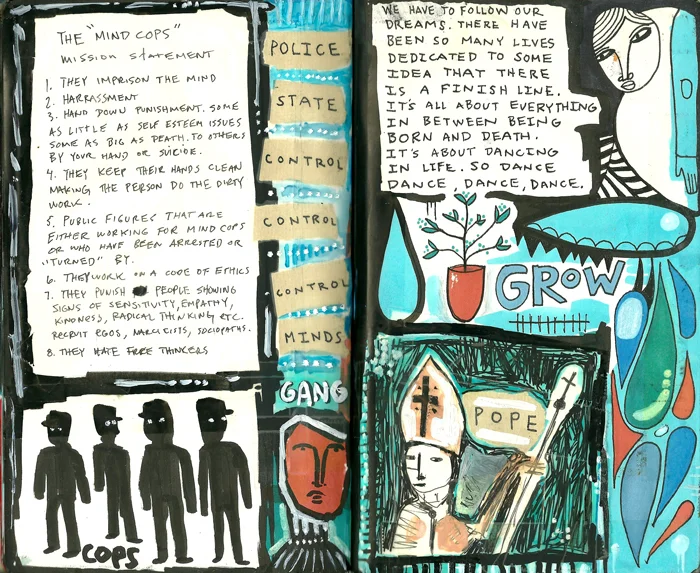 THE "MIND COPS"
MISSION STATEMENT
1. THEY IMPRISON THE MIND
2. HARRASSMENT
3. HAND DOWN PUNISHMENT. SOME
AS LITTLE AS SELF ESTEEM ISSUES
SOME AS BIG AS DEATH. TO OTHERS
BY YOUR HAND OR SUICIDE.
4. THEY KEEP THEIR HANDS CLEAN
MAKING THE PERSON DO THE DIRTY
WORK.
5. PUBLIC FIGURES THAT ARE
EITHER WORKING FOR MIND COPS
OR WHO HAVE BEEN ARRESTED OR
"TURNED" BY.
6. THEY WORK ON A CODE OF ETHICS
7. THEY PUNISH PEOPLE SHOWING
SIGNS OF SENSITIVITY, EMPATHY,
KINDNESS, RADICAL THINKING ETC.
RECRUIT EGOS, NARCICISTS, SOCIOPATHS.
8. THEY HATE FREE THINKERS
COPS
POLICE
STATE
CONTROL
CONTROL
CONTROL
MINDS
GANG
WE HAVE TO FOLLOW OUR
DREAMS. THERE HAVE
BEEN SO MANY LIVES
DEDICATED TO SOME
IDEA THAT THERE
IS A FINISH LINE.
IT'S ALL ABOUT EVERYTHING
IN BETWEEN BEING
BORN AND DEATH.
IT'S ABOUT DANCING
IN LIFE. SO DANCE
DANCE, DANCE, DANCE.
GROW
POPE